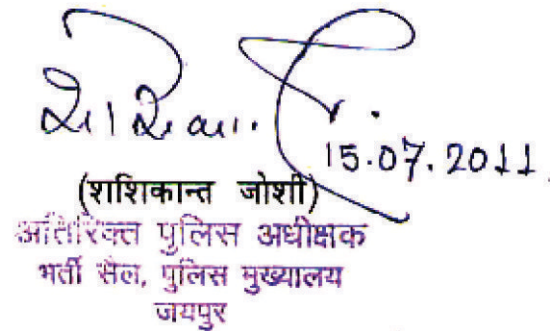 15.07.2011
(शशिकान्त जोशी)
अतिरिक्त पुलिस अधीक्षक
भर्ती सैल, पुलिस मुख्यालय
जयपुर